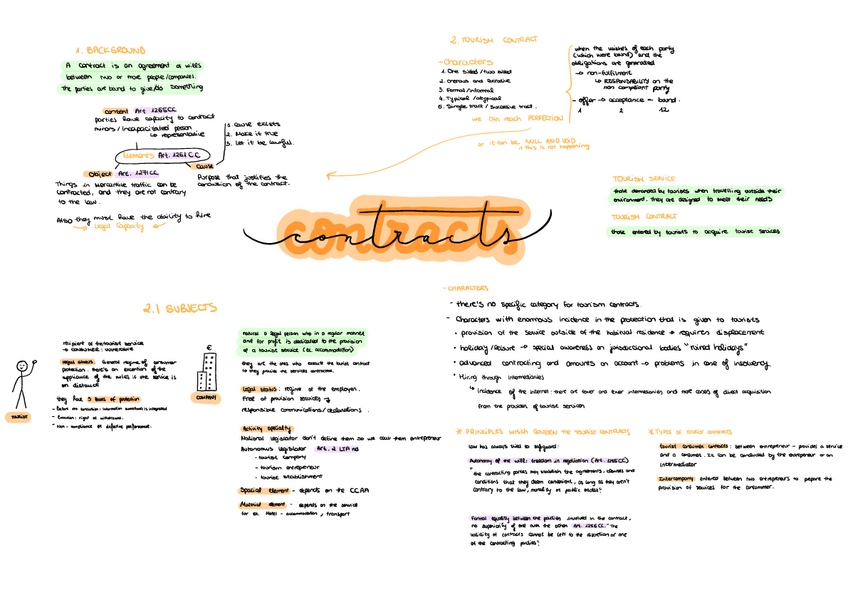 1. BACKGROUND
A contract is an agreement of wills
between two or more people/companies.
The parties are bound to give/do something
consent Art. 1263CC
parties have capacity to contract
minors/incapacitated person
↳ representative
1. cause exists
2. Make it true
3. Let it be lawful.
Elements Art. 1261 CC
cause
Object Art. 1271CC
Things in mercantile traffic can be
contracted, and they are not contrary
to the law.
Purpose that justifies the
conclusion of the contract.
Also they must have the ability to hire
Legal Capacity
2. TOURISH CONTRACT
-Characters
1. One sided / two sided
2. Onerous and lucrative
3. Formal/informal
4. Typical / atypical
5. Single tract / successive tract.
we can reach PERFECTION
when the wishes of each party
(which were bound) and the
obligations are generated
→ non-fulfilment
↳ RESPONSABILITY on the
non compliant party
- offer → acceptance - bound.
1 2 12
or it can be NULL AND VOID
if this is not happening
contracts
TOURISH SERVICE
those demanded by tourists when travelling outside their
environment. They are designed to meet their needs
TOURISH CONTRACT
those entered by tourists to acquire tourist services
2.1 SUBJECTS
recipient of the tourist service
→ consumers: vulnerable
legal status: General regime of consumer
protection. There's an exception of the
appliance of the rules if the service is
on distance
they have 3 types of protection
- Before the conclusion: information
- Execution: right of withdrawal.
- Non-compliance or defective performance.
tourist
€
company
natural or legal person who in a regular manner
and for profit is dedicated to the provision
of a tourist service (ex. accommodation)
they are the ones who execute the tourist contract
to they provide the services contracted.
Legal status: regime of the employer.
Free of provision services →
responsible communications/declarations.
Activity specialty
National legislator don't define them so we call them entrepreneur
Autonomus legislator Art. 2 LTA
- tourist company
- tourism entrepreneur
- tourist establishment
Spacial element - depends on the CCAA
Material element - depends on the service
for ex. Hotel - accommodation, transport
- CHARACTERS
- there's no specific category for tourism contracts.
- Characters with enormous incidence in the protection that is given to tourists
• provision of the service outside of the habitual residence → requires displacement
• holiday/leisure → special awareness on jurisdictional bodies "ruined holidays"
• advanced contracting and amounts on account → problems in case of insolvency.
* Hiring through intermediaries
↳ incidence of the internet: there are fewer and fewer intermediaries and more cases of direct acquisition
from the provision of tourist services
* PRINCIPLES WHICH GOVERN THE TOURIST CONTRACTS
law has always tried to safeguard:
Autonomy of the will: freedom in negotiation (Art. 1255 CC)
" the contracting parties may establish the agreements, clauses and
conditions that they deem convenient, as long as they aren't
contrary to the law, morality or public order."
Formal equality between the parties involved in the contract,
no superiority of one over the other Art. 1256 CC. "The
validity of contracts cannot be left to the discretion of one
of the contracting parties"
* TYPES OF TOURIST CONTRACTS
tourist consumer contracts: between entrepreneur - provides a service
and a consumer. It can be conducted by the entrepreneur or an
intermediator
Intercompany: entered between two entrepreneurs to prepare the
provision of services for the consumer.